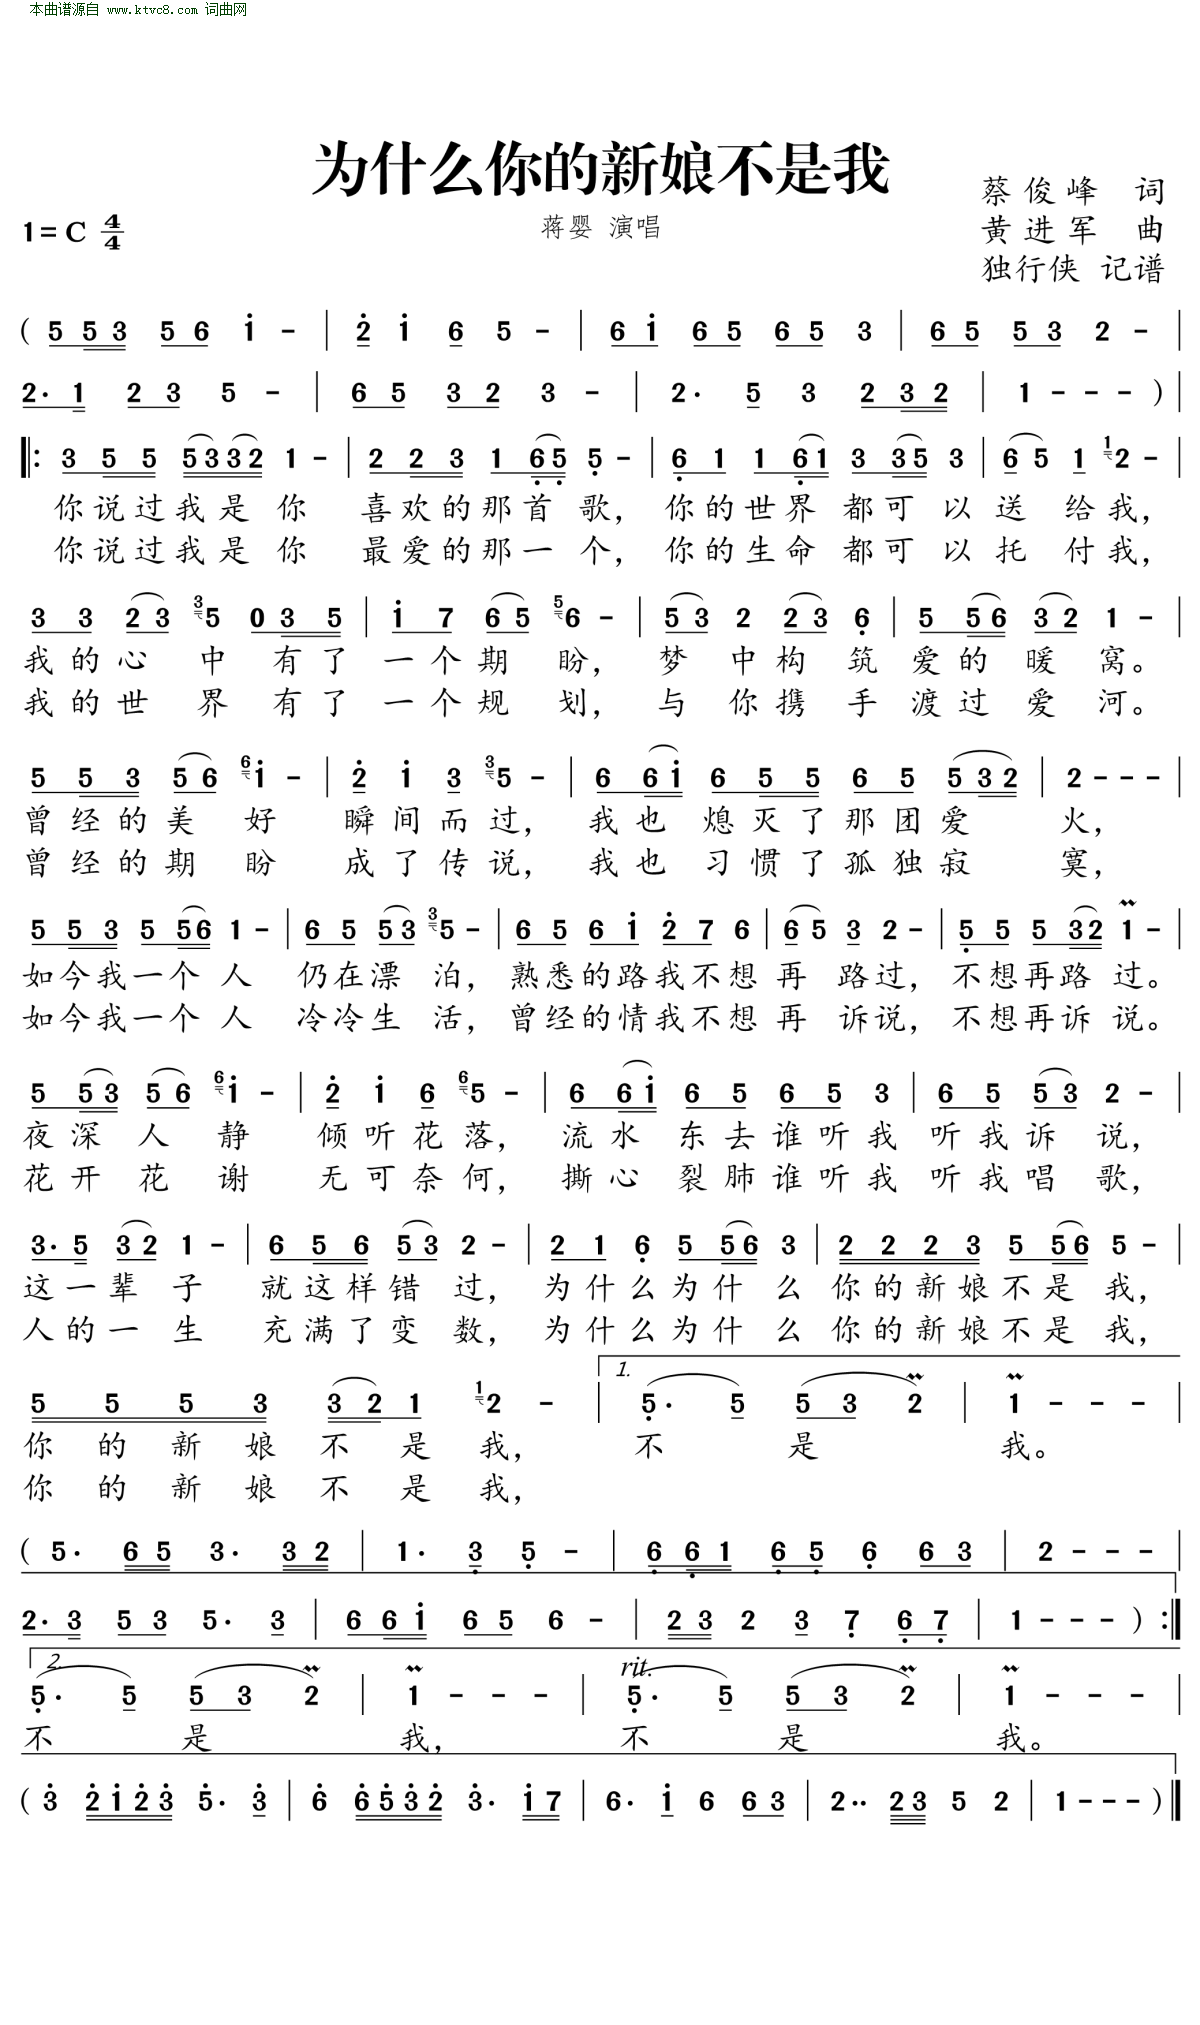 本曲谱源自 www.ktvc8.com 词曲网
为什么你的新娘不是我
蔡俊峰 词
1=C 4/4
蒋婴 演唱
黄进军 曲
独行侠 记谱
( 5 5 3 5 6 i - | 2 i 6 5 - | 6 i 6 5 6 5 3 | 6 5 5 3 2 - |
2. 1 2 3 5 - | 6 5 3 2 3 - | 2. 5 3 2 3 2 | 1 - - - ) |
‖: 3 5 5 5 3 3 2 1 - | 2 2 3 1 6 5 5 - | 6 1 1 6 1 3 3 5 3 | 6 5 1 1 2 - |
你说过我是你 喜欢的那首歌，你的世界都可以送给我，
你说过我是你 最爱的那一个，你的生命都可以托付我，
3 3 2 3 3 5 0 3 5 | i 7 6 5 5 6 - | 5 3 2 2 3 6 | 5 5 6 3 2 1 - |
我的心中有了一个期盼，梦中构筑爱的暖窝。
我的世界有了一个规划，与你携手渡过爱河。
5 5 3 5 6 6 i - | 2 i 3 3 5 - | 6 6 i 6 5 5 6 5 5 3 2 | 2 - - - |
曾经的美好 瞬间而过，我也熄灭了那团爱火，
曾经的期盼 成了传说，我也习惯了孤独寂寞，
5 5 3 5 5 6 1 - | 6 5 5 3 3 5 - | 6 5 6 i 2 7 6 | 6 5 3 2 - | 5 5 5 3 2 1 - |
如今我一个人 仍在漂泊，熟悉的路我不想再路过，不想再路过。
如今我一个人 冷冷生活，曾经的情我不想再诉说，不想再诉说。
5 5 3 5 6 6 i - | 2 i 6 6 5 - | 6 6 i 6 5 6 5 3 | 6 5 5 3 2 - |
夜深人静 倾听花落，流水东去谁听我听我诉说，
花开花谢 无可奈何，撕心裂肺谁听我听我唱歌，
3. 5 3 2 1 - | 6 5 6 5 3 2 - | 2 1 6 5 5 6 3 | 2 2 2 3 5 5 6 5 - |
这一辈子 就这样错过，为什么为什么你的新娘不是我，
人的一生 充满了变数，为什么为什么你的新娘不是我，
1.
5 5 5 3 3 2 1 1 2 - | 5. 5 5 3 2 | 1 - - - |
你的新娘不是我，不是我。
你的新娘不是我，
( 5. 6 5 3. 3 2 | 1. 3 5 - | 6 6 1 6 5 6 6 3 | 2 - - - |
2. 3 5 3 5. 3 | 6 6 i 6 5 6 - | 2 3 2 3 7 6 7 | 1 - - - ) :‖
2. rit.
5. 5 5 3 2 | 1 - - - | 5. 5 5 3 2 | 1 - - - |
不是我，不是我。
( 3 2 1 2 3 5. 3 | 6 6 5 3 2 3. i 7 | 6. i 6 6 3 | 2.. 2 3 5 2 | 1 - - - ) ‖